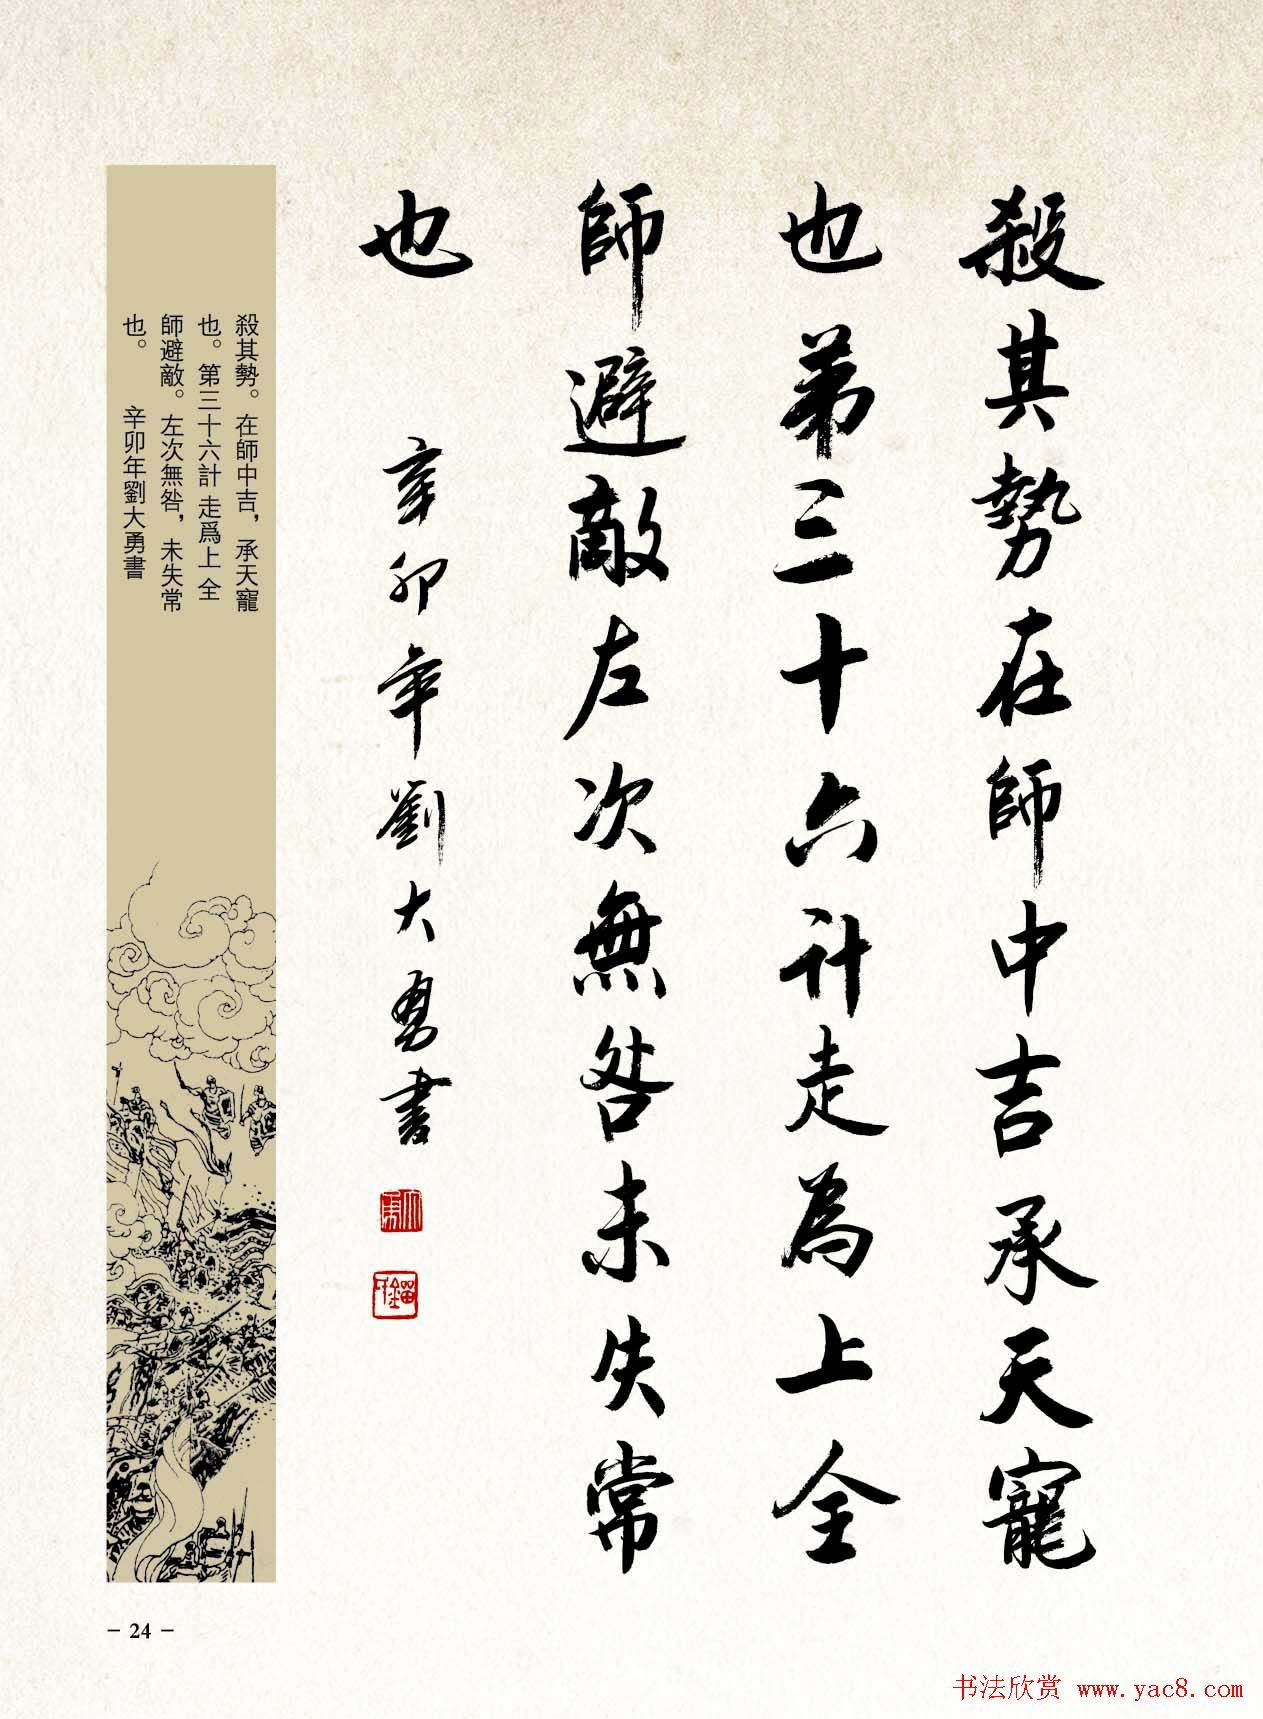 殺其勢在師中吉承天寵
也第三十六计走為上全
師避敵左次無咎未失常
也
辛卯年劉大勇書
殺其勢。在師中吉，承天寵
也。第三十六計 走爲上 全
師避敵。左次無咎，未失常
也。 辛卯年劉大勇書
- 24 -
书法欣赏 www.yac8.com